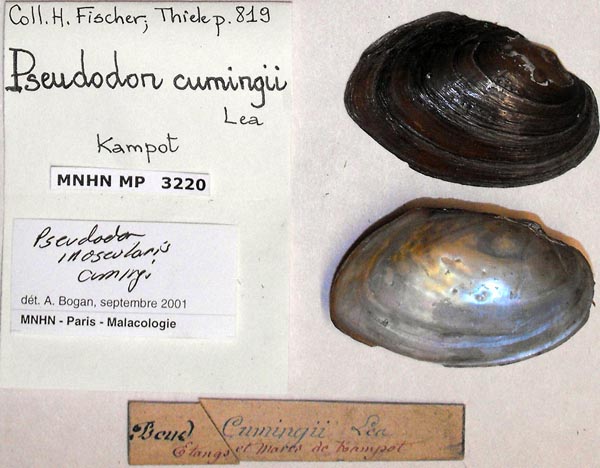 Coll. H. Fischer; Thiele p. 819
Pseudodon cumingii
Lea
Kampot
MNHN MP 3220
Pseudodon
inoscularis
cumingi
dét. A. Bogan, septembre 2001
MNHN - Paris - Malacologie
Pseud Cumingii Léa
Etangs et Mares de Kampot